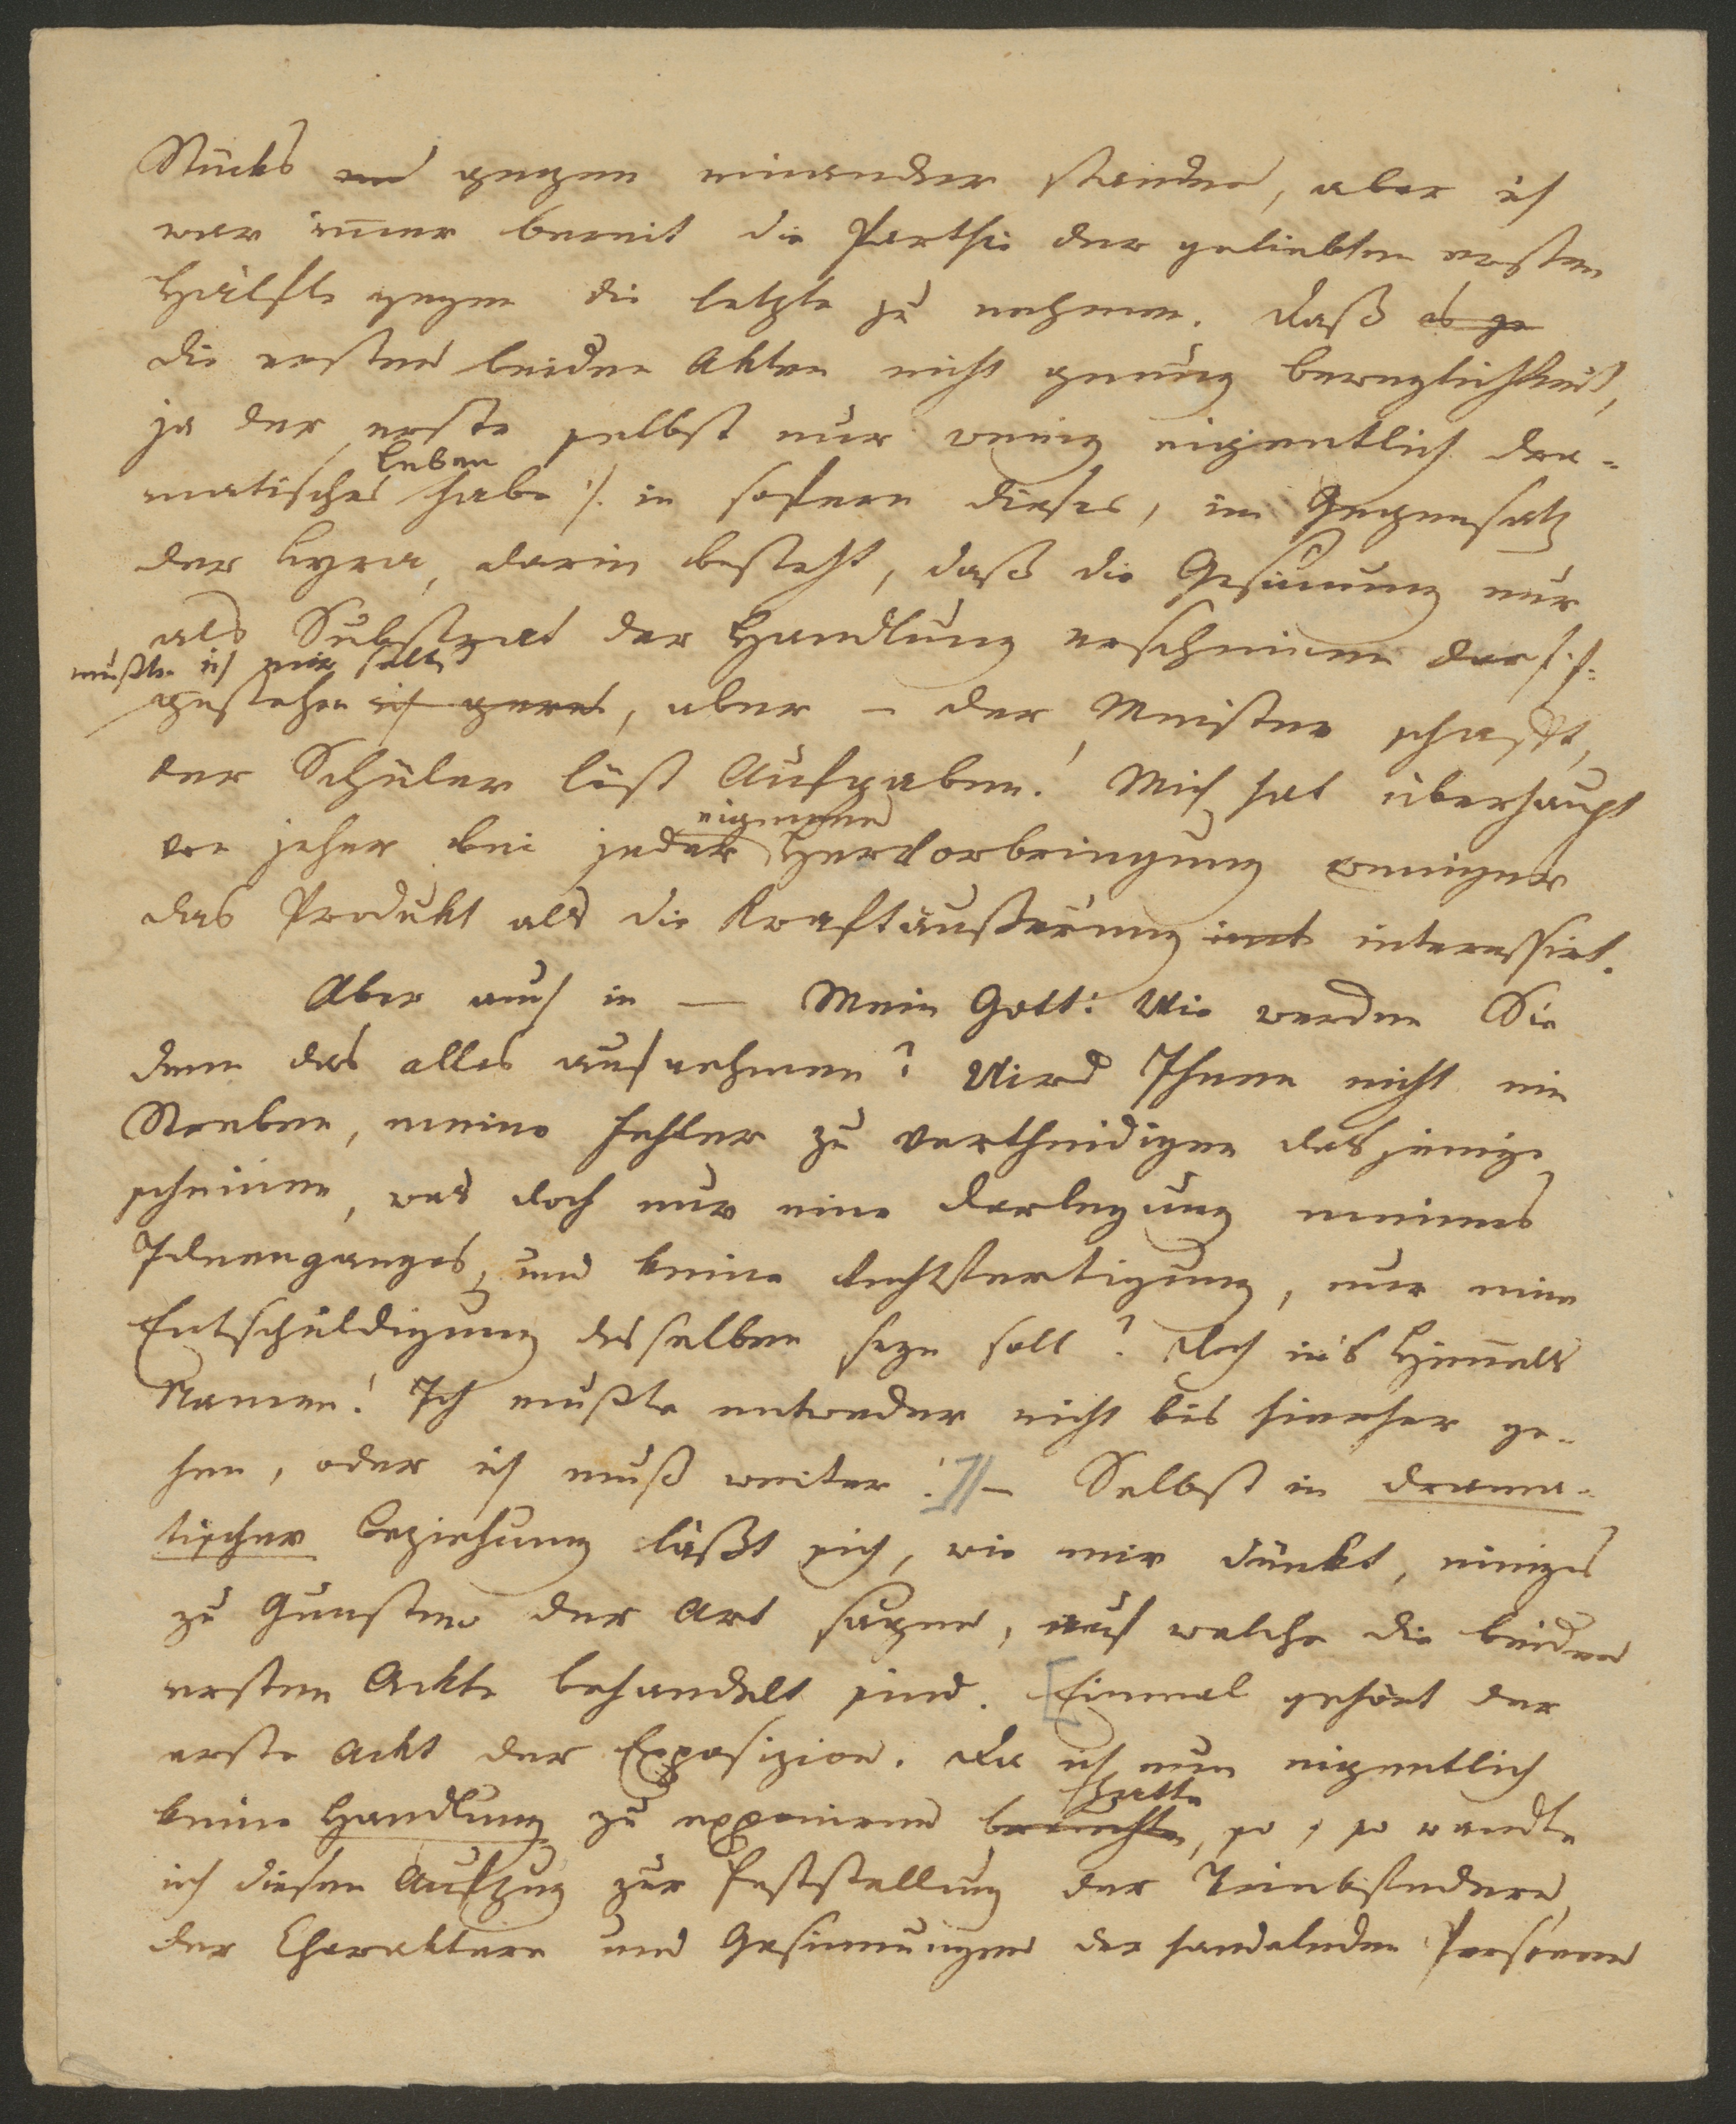 Stücks und gegen einander standen, aber ich
war immer bereit die Parthie der geliebten ersten
Hälfte gegen die letzte zu nehmen. Daß es ge
die ersten beiden Akten nicht genung Beweglichkeit,
ja der erste selbst nur wenig eigentlich dra-
matisches Leben habe /: in sofern dieses, im Gegensatz
der Lyra, darin besteht, daß die Gesinnung nur
als Substrat der Handlung erscheinen darf :/
mußte ich mir selbst
gestehen ich gern, aber – der Meister schafft,
der Schüler löst Aufgaben! Mich hat überhaupt
von jeher bei jeder eigenen Hervorbringung weniger
das Produkt als die Kraftäußerung interessirt.
Aber auch in — Mein Gott! Wie werden Sie
denn das alles aufnehmen? Wird Ihnen nicht ein
Streben, meine Fehler zu vertheidigen dasjenige
scheinen, was doch nur eine Darlegung meines
Ideenganges, und keine Rechtfertigung, nur eine
Entschuldigung desselben seyn soll? Doch in's Himmels
Namen! Ich mußte entweder nicht bis hieher ge-
hen, oder ich muß weiter! – Selbst in drama-
tischer Beziehung läßt sich, wie mir dünkt, einiges
zu Gunsten der Art sagen, auf welche die beiden
ersten Ackte behandelt sind. [Einmal gehört der
erste Ackt der Exposizion. Da ich nun eigentlich
keine Handlung zu exponiren brauchte hatte, so, so wandte
ich diesen Aufzug zur Feststellung der Triebfedern,
der Charaktere und Gesinnungen der handelnden Personen